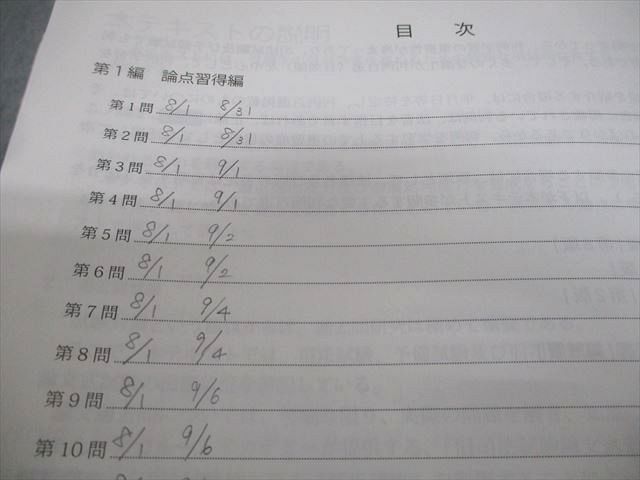 目 次
第1編 論点習得編
第1問 8/1 8/31
第2問 8/1 8/31
第3問 8/1 9/1
第4問 8/1 9/1
第5問 8/1 9/2
第6問 8/1 9/2
第7問 8/1 9/4
第8問 8/1 9/4
第9問 8/1 9/6
第10問 8/1 9/6